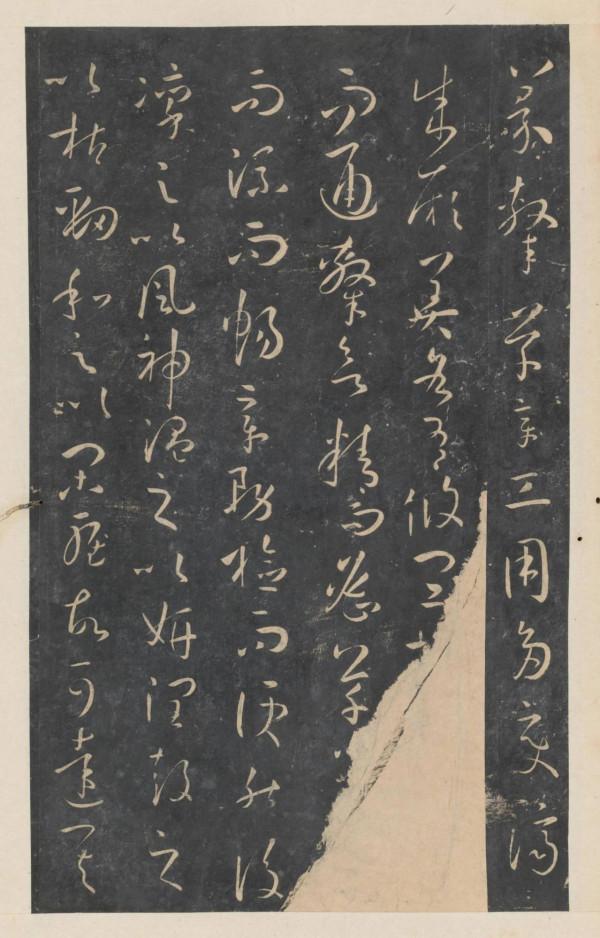 篆隸草章工用多變濟
成厥美各有攸宜
而通隸欲精而密草
而流而暢章務檢而便然後
凜之以風神溫之以妍潤鼓之
以枯勁和之以閑雅故可達其